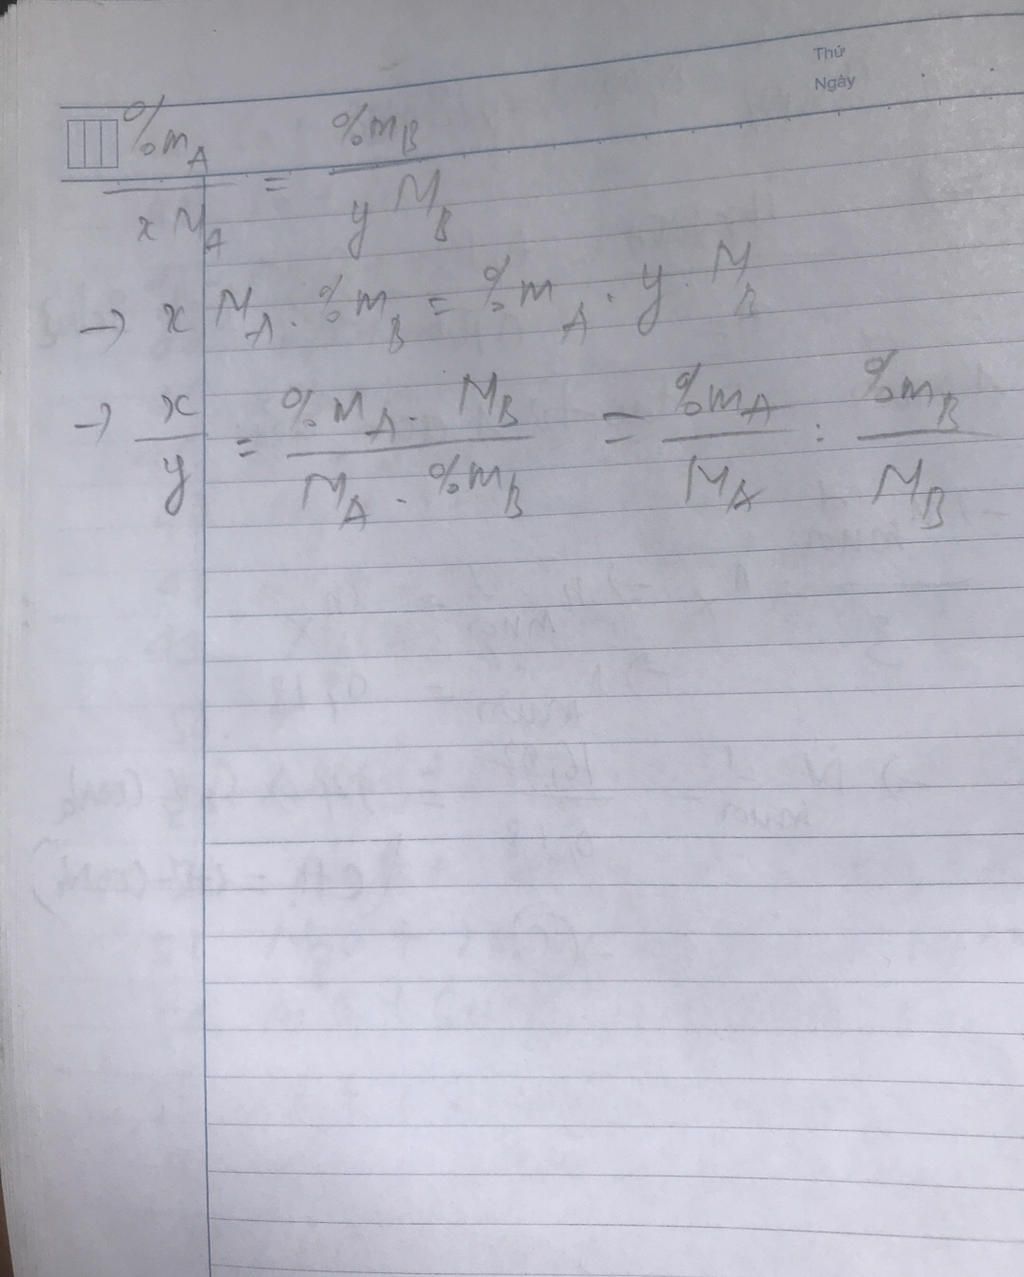 Thứ
Ngày
%mA / xMA = %mB / yMB
→ x MA . %mB = %mA . y . MB
→ x/y = %mA . MB / MA . %mB = %mA / MA : %mB / MB